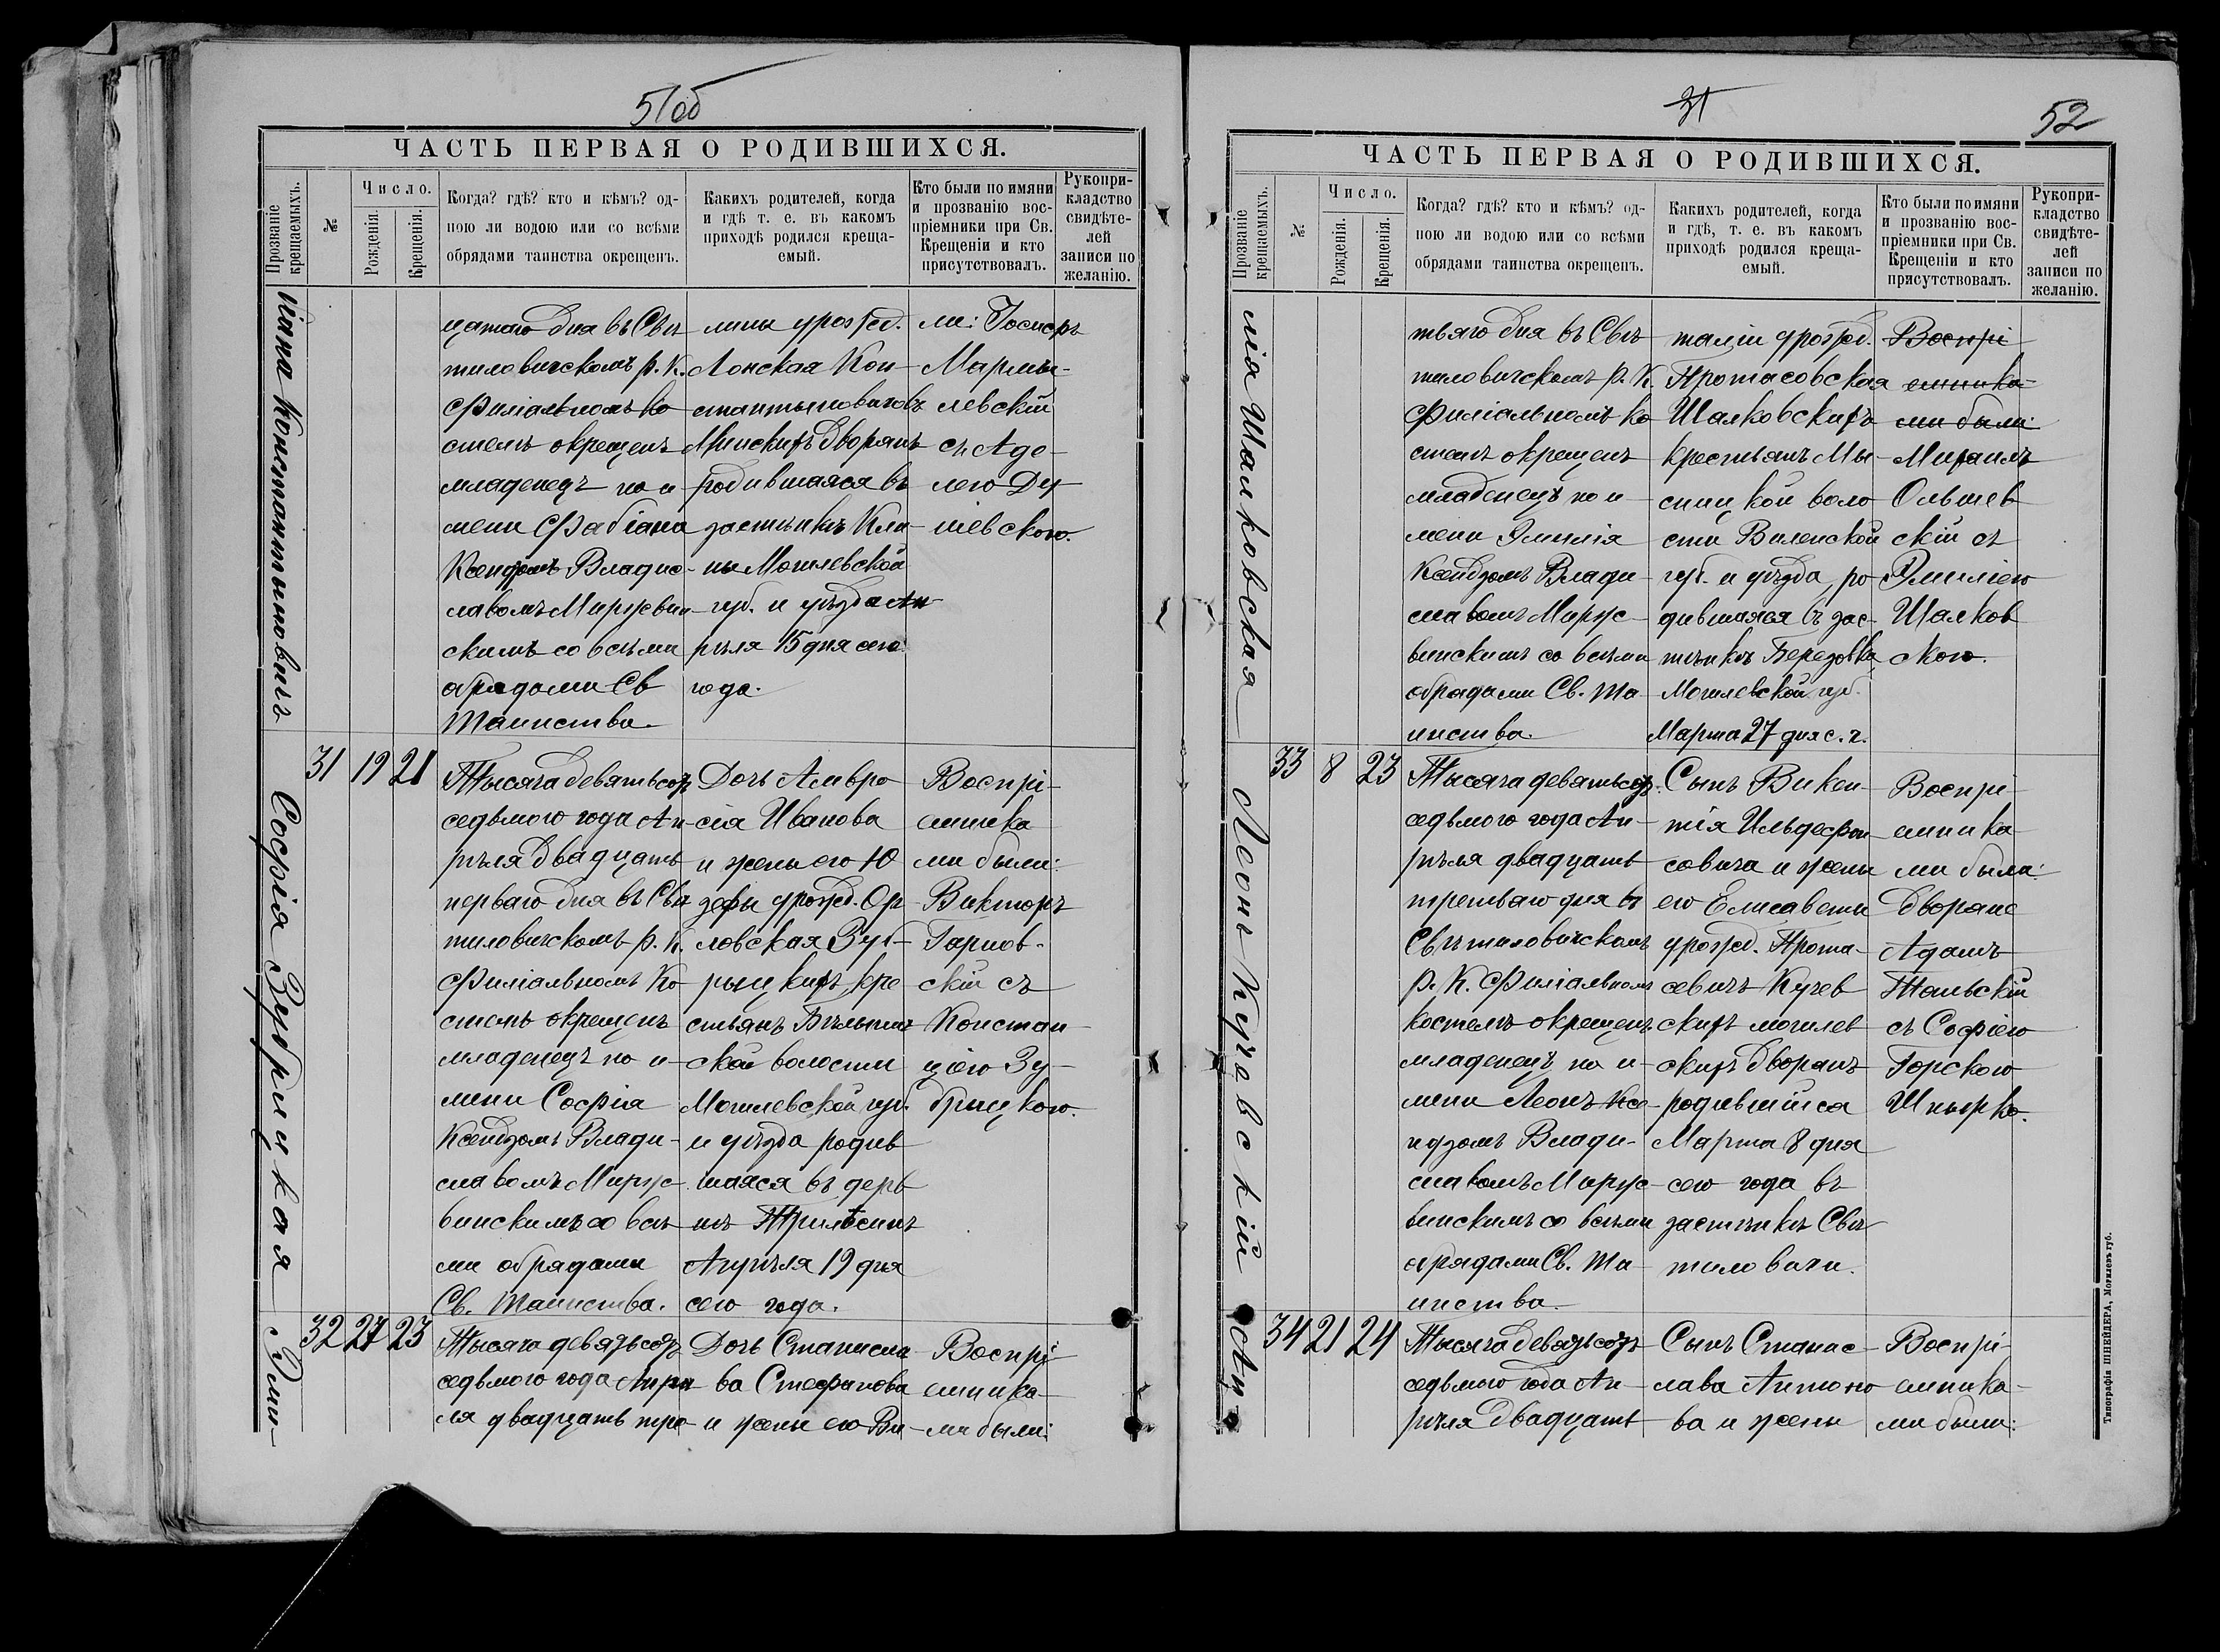 51об
ЧАСТЬ ПЕРВАЯ О РОДИВШИХСЯ.
Прозваніе крещаемыхъ.
№
Число.
Рожденія.
Крещенія.
Когда? гдѣ? кто и кѣмъ? од-
ною ли водою или со всѣми
обрядами таинства окрещенъ.
Какихъ родителей, когда
и гдѣ т. е. въ какомъ
приходѣ родился креща-
емый.
Кто были по имяни
и прозванію вос-
пріемники при Св.
Крещеніи и кто
присутствовалъ.
Рукопри-
кладство
свидѣте-
лей
записи по
желанію.
ціана Константиновичъ
цатаго дня въ Свѣ
тиловичскомъ р. К.
филіальномъ Ко
стелѣ окрещенъ
младенецъ по и
мени Фабіана
Ксендзомъ Владис
лавомъ Марусвин
скимъ со всѣми
обрядами Св
Таинства.
лины урожд.
Лонская Кон
стантиновичовъ
Минскихъ дворянъ
родившаяся въ
застѣнкѣ Кли
ны Могилевской
губ. и уѣзда Ап
рѣля 15 дня сего
года.
ми: Госперъ
Марцин-
левскій
съ Аде-
лею Ду
шевскою.
Софія Зубрицкая
31 19 21
Тысяча девятьсотъ
седьмого года Ап
рѣля двадцать
перваго дня въ Свѣ
тиловичскомъ р. К.
филіальномъ Ко
стелѣ окрещенъ
младенецъ по и
мени Софія
Ксендзомъ Влади-
славомъ Марус
винскимъ со всѣ
ми обрядами
Св. Таинства.
Дочь Амвро
сія Иванова
и жены его Ю
зефы урожд. Ор
ловская Зуб-
рицкихъ кре
стьянъ Бѣлыниц
ской волости
Могилевской губ.
и уѣзда родив
шаяся въ дерв
нѣ Трилѣсинѣ
Апрѣля 19 дня
сего года.
Воспрі-
емника
ми были:
Викторъ
Гарнов-
скій съ
Констан
ціею Зу-
брицкою.
Эми-
32 27 23
Тысяча девятьсотъ
седьмого года Апрѣ
ля двадцать тре
Дочь Станисла
ва Стефанова
и жены его Ви
Воспрі
емника-
ми были:
31
52
ЧАСТЬ ПЕРВАЯ О РОДИВШИХСЯ.
Прозваніе крещаемыхъ.
№
Число.
Рожденія.
Крещенія.
Когда? гдѣ? кто и кѣмъ? од-
ною ли водою или со всѣми
обрядами таинства окрещенъ.
Какихъ родителей, когда
и гдѣ, т. е. въ какомъ
приходѣ родился креща-
емый.
Кто были по имяни
и прозванію вос-
пріемники при Св.
Крещеніи и кто
присутствовалъ.
Рукопри-
кладство
свидѣте-
лей
записи по
желанію.
лія Шалковская
тьяго дня въ Свѣ
тиловичскомъ р. К.
филіальномъ ко
стелѣ окрещенъ
младенецъ по и
мени Эмилія
Ксендзомъ Влади
славомъ Марус-
винскимъ со всѣми
обрядами Св. Та
инства.
таліи урожд.
Протасовская
Шалковскихъ
крестьянъ Мы-
сицкой воло
сти Виленской
губ. и уѣзда, ро
дившаяся въ зас-
тѣнкѣ Березовка
Могилевской губ.
Марта 27 дня с. г.
Воспрі
емника-
ми были:
Михаилъ
Ольшев
скій съ
Эмиліею
Шалков
скою.
Леонъ Кучевскій
33 8 23
Тысяча девятьсотъ
седьмого года Ап-
рѣля двадцать
третьяго дня въ
Свѣтиловичскомъ
р. К. филіальномъ
костелѣ окрещенъ
младенецъ по и-
мени Леонъ Ксе-
ндзомъ Влади-
славомъ Марус-
винскимъ со всѣми
обрядами Св. Та-
инства.
Сынъ Викен-
тія Ильдефон
совича и жены
его Елисаветы
урожд. Прота-
севичъ Кучев
скихъ могилев
скихъ дворянъ
родившійся
Марта 8 дня
сего года въ
застѣнкѣ Свѣ
тиловичи.
Воспрі-
емника-
ми были:
дворяне
Адамъ
Тальскій
съ Софіею
Горскою
Шнырко.
Ан
34 21 24
Тысяча девятьсотъ
седьмого года Ап-
рѣля двадцать
Сынъ Станис-
лава Антоно
ва и жены
Воспрі-
емника-
ми были:
Типографія ШНЕЙДЕРА, Могилевъ губ.